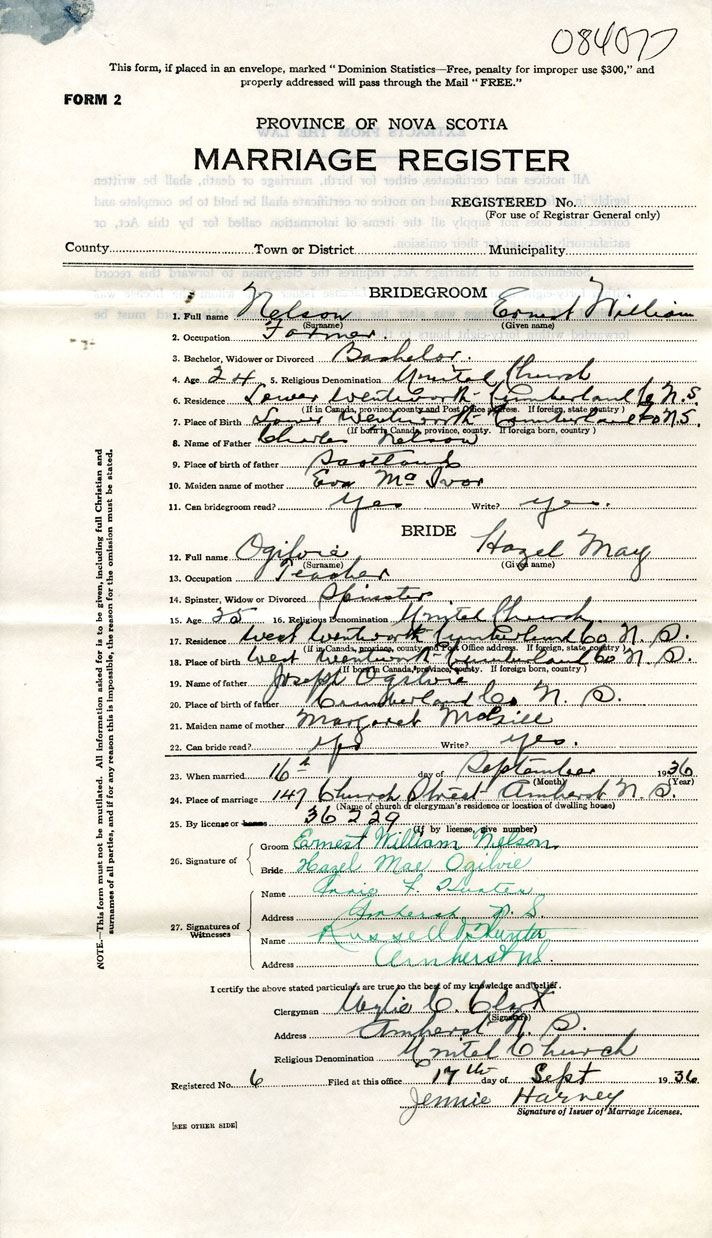 084077
This form, if placed in an envelope, marked "Dominion Statistics—Free, penalty for improper use $300," and
properly addressed will pass through the Mail "FREE."
FORM 2
PROVINCE OF NOVA SCOTIA
MARRIAGE REGISTER
REGISTERED No.
(For use of Registrar General only)
County Town or District Municipality
BRIDEGROOM
1. Full name Nelson Ernest William
(Surname) (Given name)
2. Occupation Farmer.
3. Bachelor, Widower or Divorced Bachelor.
4. Age 24 5. Religious Denomination United Church
6. Residence Lower Wentworth Cumberland Co N.S.
(If in Canada, province, county and Post Office address. If foreign, state country)
7. Place of Birth Lower Wentworth Cumberland Co N.S.
(If born in Canada, province, county. If foreign born, country)
8. Name of Father Charles Nelson
9. Place of birth of father Scotland
10. Maiden name of mother Eva McIvor
11. Can bridegroom read? Yes Write? yes.
BRIDE
12. Full name Ogilvie Hazel May
(Surname) (Given name)
13. Occupation Teacher
14. Spinster, Widow or Divorced Spinster
15. Age 25 16. Religious Denomination United Church
17. Residence West Wentworth Cumberland Co N. S.
(If in Canada, province, county and Post Office address. If foreign, state country)
18. Place of birth West Wentworth Cumberland Co N. S.
(If born in Canada, province, county. If foreign born, country)
19. Name of father Joseph Ogilvie
20. Place of birth of father Cumberland Co N. S.
21. Maiden name of mother Margaret McGill
22. Can bride read? yes Write? yes.
23. When married 16th day of September 1936
(Month) (Year)
24. Place of marriage 147 Church Street Amherst N. S.
(Name of church or clergyman's residence or location of dwelling house)
25. By license or banns 36229
(If by license, give number)
26. Signature of Groom Ernest William Nelson.
Bride Hazel Mae Ogilvie
27. Signatures of Witnesses
Name Annie F. Hunter
Address Amherst N. S
Name Russell Hunter
Address Amherst NS.
I certify the above stated particulars are true to the best of my knowledge and belief.
Clergyman Wylie C. Clark
(Signature)
Address Amherst N. S.
Religious Denomination United Church
Registered No. 6 Filed at this office 17th day of Sept 1936
Jennie Harney
Signature of Issuer of Marriage Licenses.
[SEE OTHER SIDE]
NOTE.—This form must not be mutilated. All information asked for is to be given, including full Christian and
surnames of all parties, and if for any reason this is impossible, the reason for the omission must be stated.